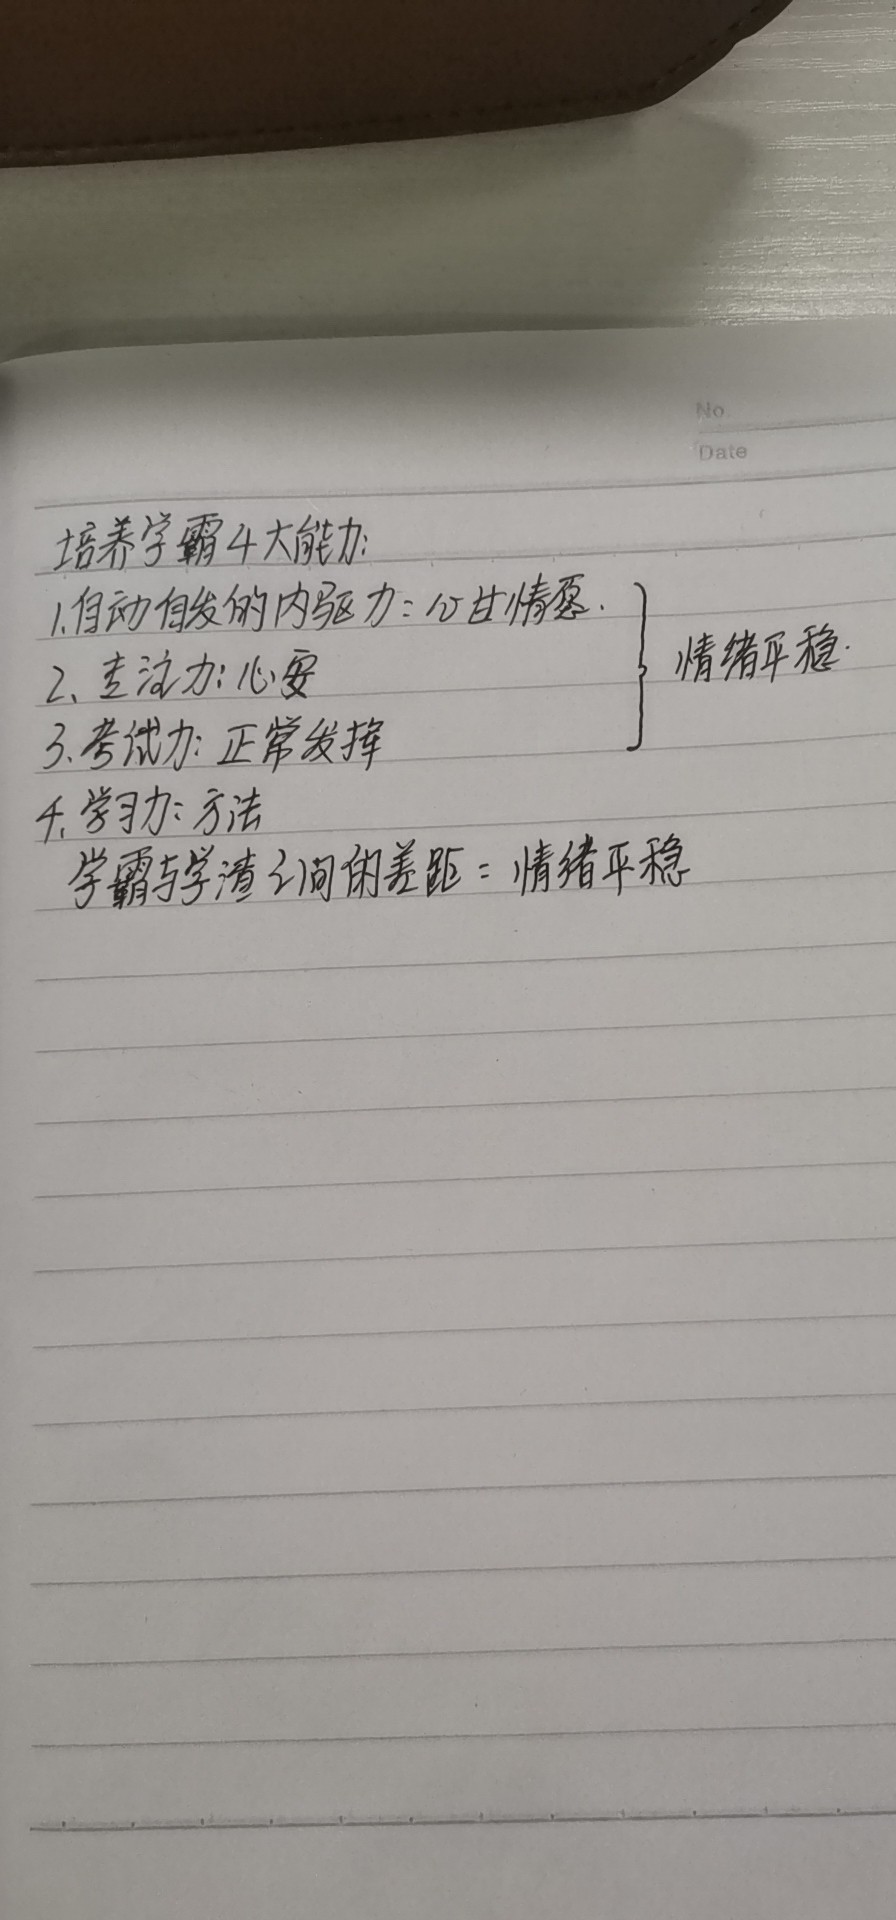 No.
Date
培养学霸4大能力:
1.自动自发的内驱力:心甘情愿.
情绪平稳.
2、专注力:心安
3.考试力:正常发挥
4.学习力:方法
学霸与学渣之间的差距=情绪平稳